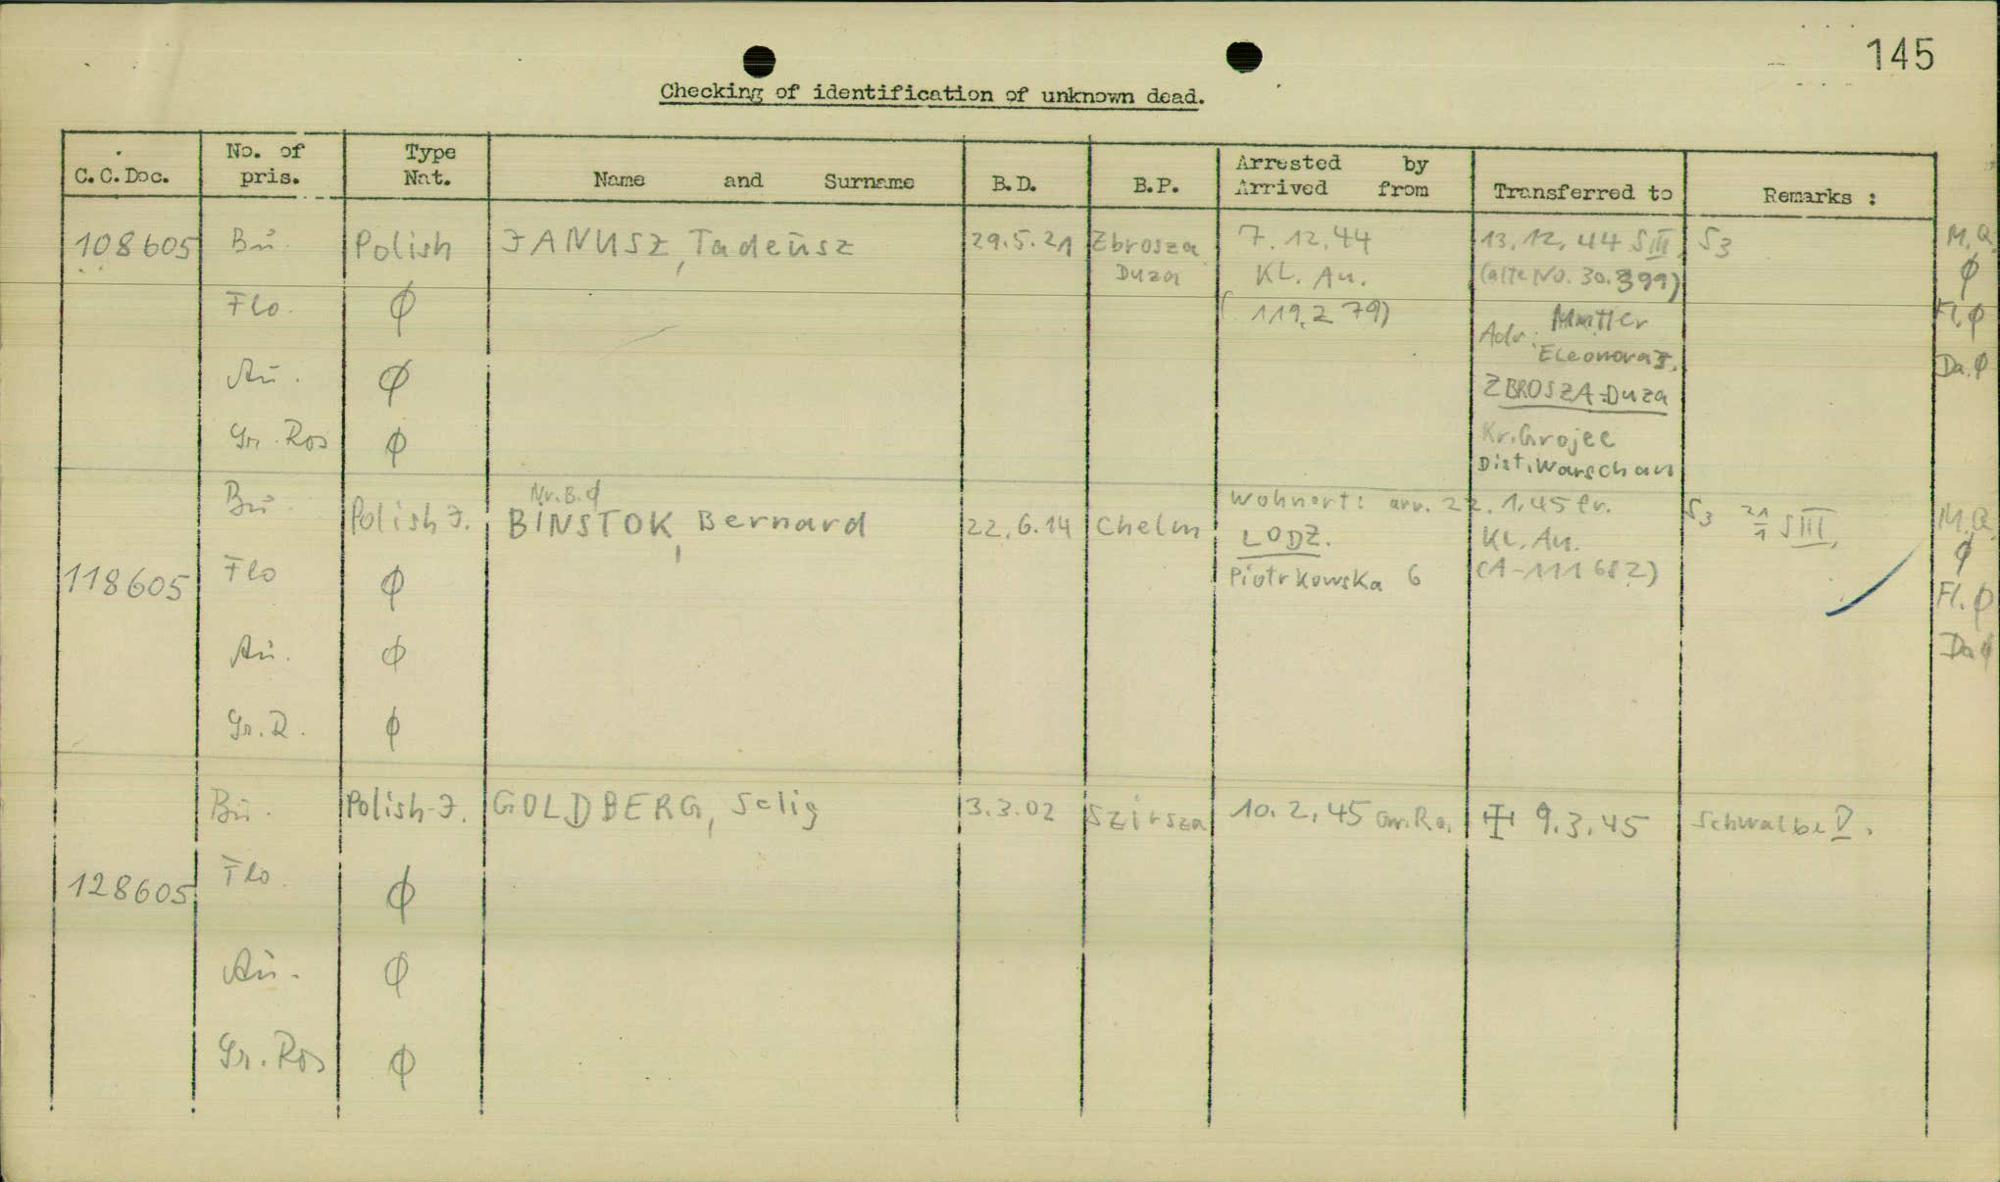 145
Checking of identification of unknown dead.
C.C.Doc. No. of pris. Type Nat. Name and Surname B.D. B.P. Arrested by Arrived from Transferred to Remarks :
108605 Bu. Polish JANUSZ, Tadeusz 29.5.21 Zbrosza 7.12.44 13.12.44 SIII S3 M.Q.
Duza KL. Au. (alte No. 30.399) ϕ
Flo. ϕ (119.279) Mutter Fl. ϕ
Adr.: Eleonora J.
Au. ϕ ZBROSZA-Duza Da. ϕ
Gr. Ros ϕ Kr. Grojec
Dist. Warschau
Bu. Nr. B. ϕ Wohnort: arr. 22.1.45 fr.
Polish J. BINSTOK, Bernard 22.6.14 Chelm LODZ. KL. Au. S3 21/1 SIII. M.Q.
ϕ
118605 Flo ϕ Piotrkowska 6 Fl. ϕ
Au. ϕ Da ϕ
Gr. R. ϕ
Bu. Polish-J. GOLDBERG, Selig 3.3.02 Szirsza 10.2.45 Gr. Ro. 9.3.45 Schwalbe V.
128605 Flo. ϕ
Au. ϕ
Gr. Ros ϕ